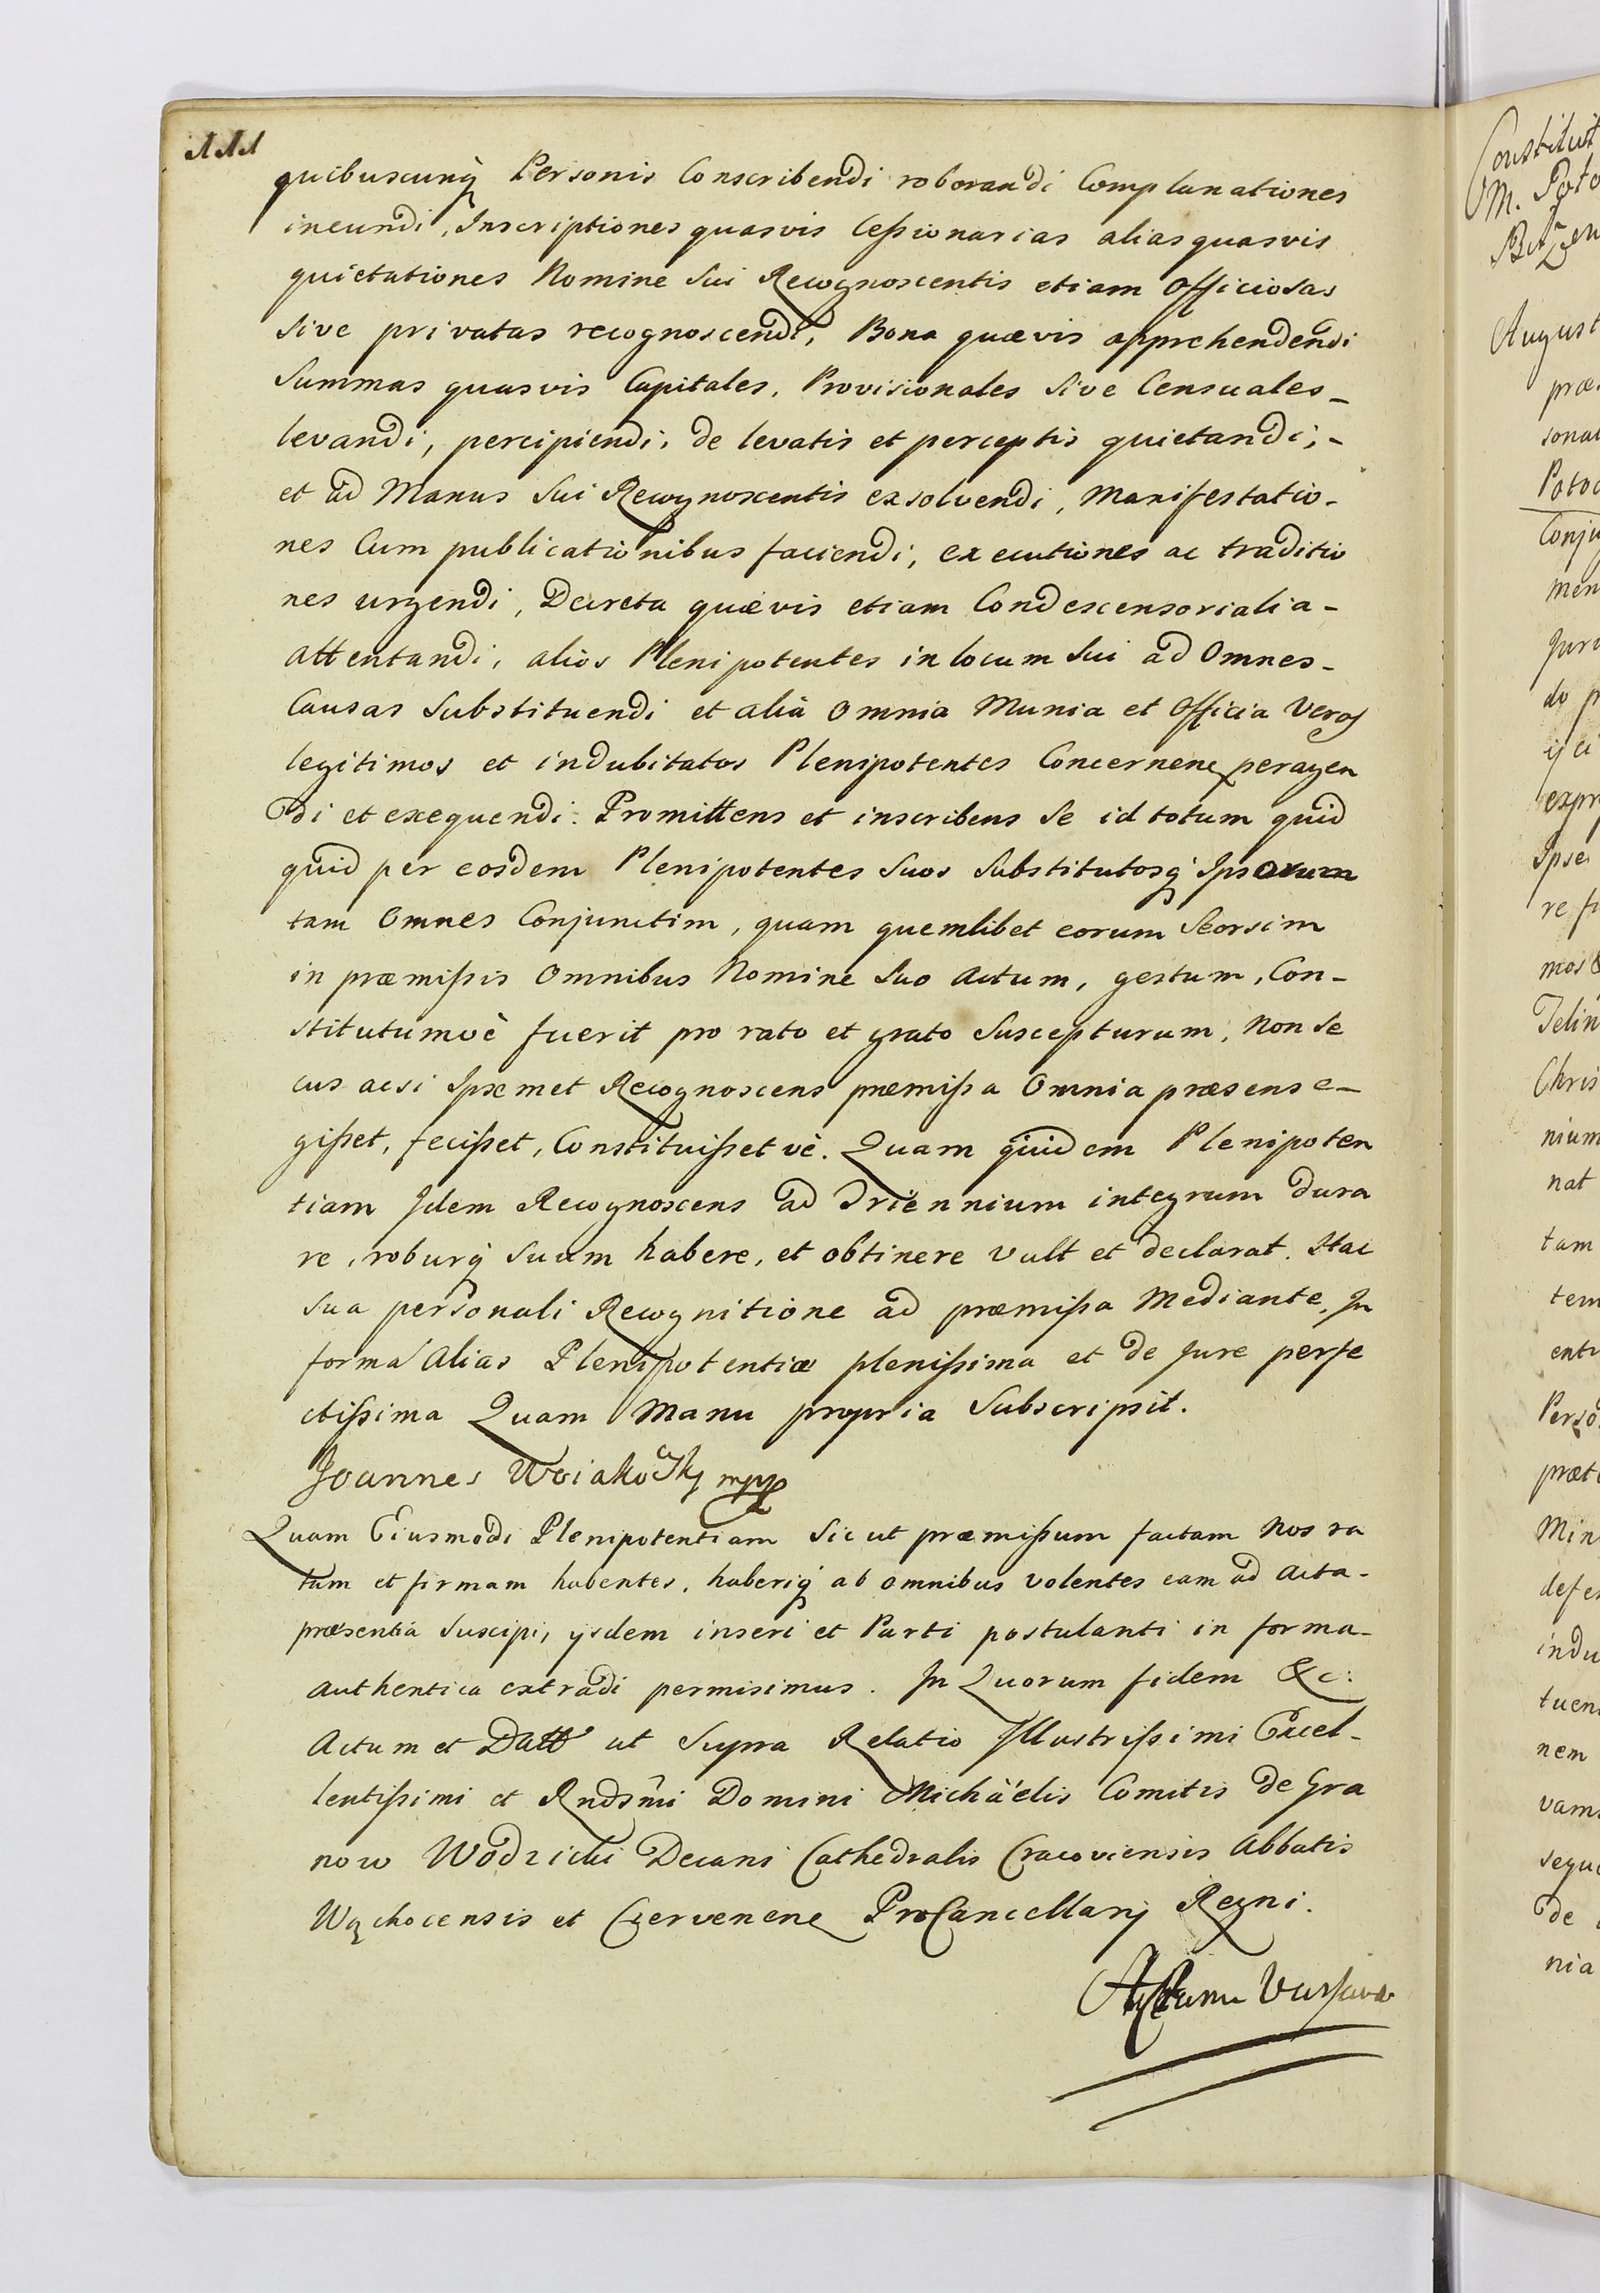 111
quibuscunq́ Personis Conscribendi roborandi Complanationes
ineundi, Inscriptiones quasvis Cessionarias alias quasvis
quietationes Nomine Sui Recognoscentis etiam Officiosas
Sive privatas recognoscendi, Bona quævis apprehendendi
Summas quasvis Capitales, Provisionales Sive Censuales_
levandi, percipiendi, de levatis et perceptis quietandi,-
et ad Manus Sui Recognoscentis exsolvendi, Manifestatio-
nes Cum publicationibus faciendi, executiones ac traditio
nes urgendi, Decreta quævis etiam Condescensorialia-
attentandi, alios Plenipotentes in locum Sui ad Omnes-
Causas Substituendi et alia Omnia Munia et Officia Veros
legitimos et indubitatos Plenipotentes Concernen peragen
di et exequendi. Promittens et inscribens Se id totum quid
quid per eosdem Plenipotentes Suos Substitutosq́ Ipsorum
tam Omnes Conjunctim, quam quemlibet eorum Seorsim
in præmissis Omnibus Nomine Suo Actum, gestum, Con-
stitutumvè fuerit pro rato et grato Suscepturum, Non Se
cus acsi Ipsemet Recognoscens præmissa Omnia præsens e-
gisset, fecisset, Constituisset vè. Quam quidem Plenipoten
tiam Idem Recognoscens ad Triennium integrum dura
re, roburq́ Suum habere, et obtinere vult et declarat. Hac
Sua personali Recognitione ad præmissa Mediante, In
forma Alias Plenipotentiæ plenissima et de Jure perfe
ctissima Quam Manu propria Subscripsit.
Joannes Woiakowsky mpp
Quam Eiusmodi Plenipotentiam Sic ut præmissum factam Nos ra
tam et firmam habentes, haberiq́ ab omnibus volentes eam ad Acta-
præsentia Suscipi, ysdem inseri et Parti postulanti in forma-
authentica extradi permisimus. In Quorum fidem &c:
Actum et Datt ut Supra Relatio Illustrissimi Excel-
lentissimi et Rndsm̃i Domini Michäelis Comitis de Gra
now Wodzicki Decani Cathedralis Cracoviensis Abbatis
Wąchocensis et Czervenen ProCancellarij Regni.
Constitut
M. Poto
August
præ
sonal
Potoc
Conju
men
Juri
do p
expr
Ipse
re f
mos &
Telin
Chris
nium
nat
tam
tem
ent
Perso
præt
Min
defe
indu
tuen
nem
vam
sequ
de
nia